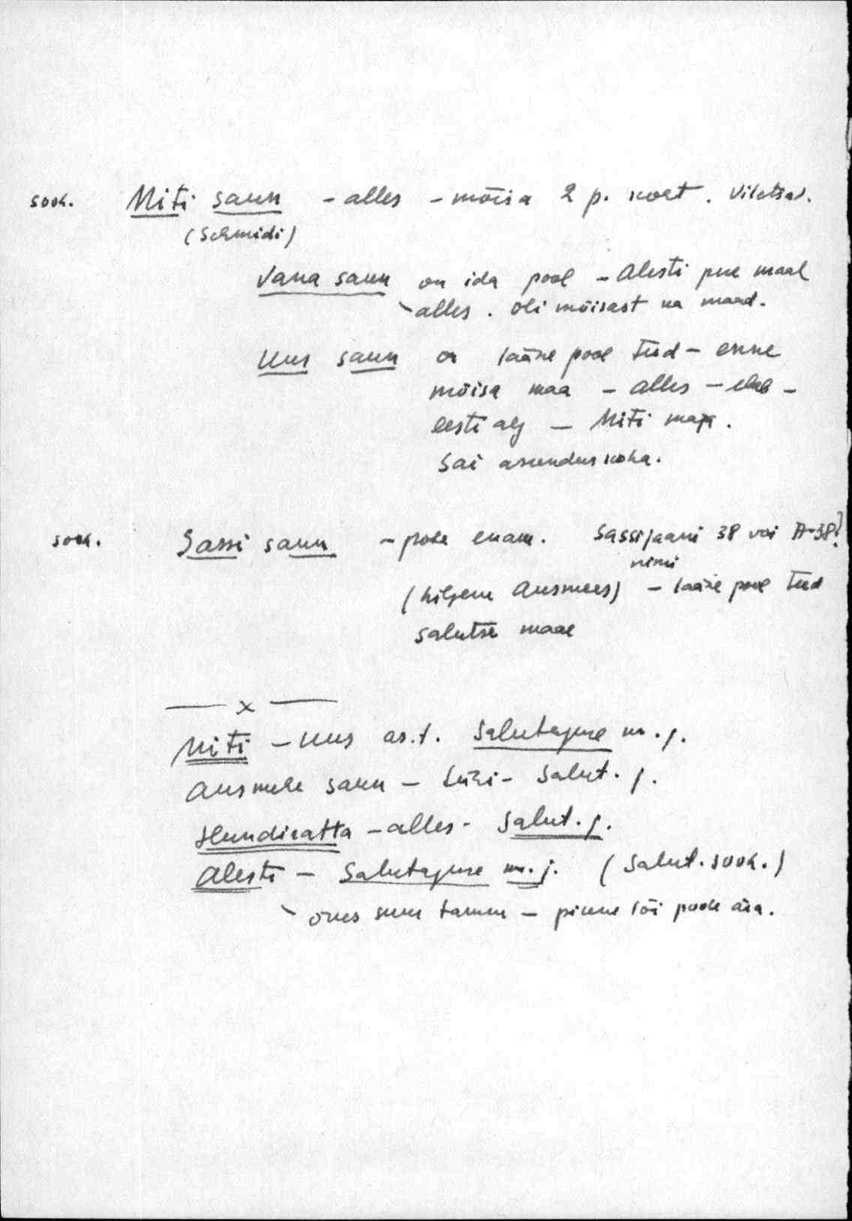 sook. Miti saun - alles - mõisa 2 p. koet. viletsad.
(Schmidi)
Vana saun on ida pool - Alesti pere maal
alles. oli mõisast ka maad.
Uus saun on lääne pool teed - enne
mõisa maa - alles - elab -
eesti aj - Miti maja.
Sai asunduskoha.
sook. Sassi saun - pole enam. Sassijaani 38 või A-38?
nimi
(hiljem Ausmees) - lääne pool teed
Salutse maal
— x —
Miti - uus as.t. Salutaguse m.j.
Ausmehe saun - Salut. j.
Hundiratta - alles - Salut. j.
Alesti - Salutaguse m.j. (Salut. sook.)
õues suur tamm - pikne lõi poole ära.